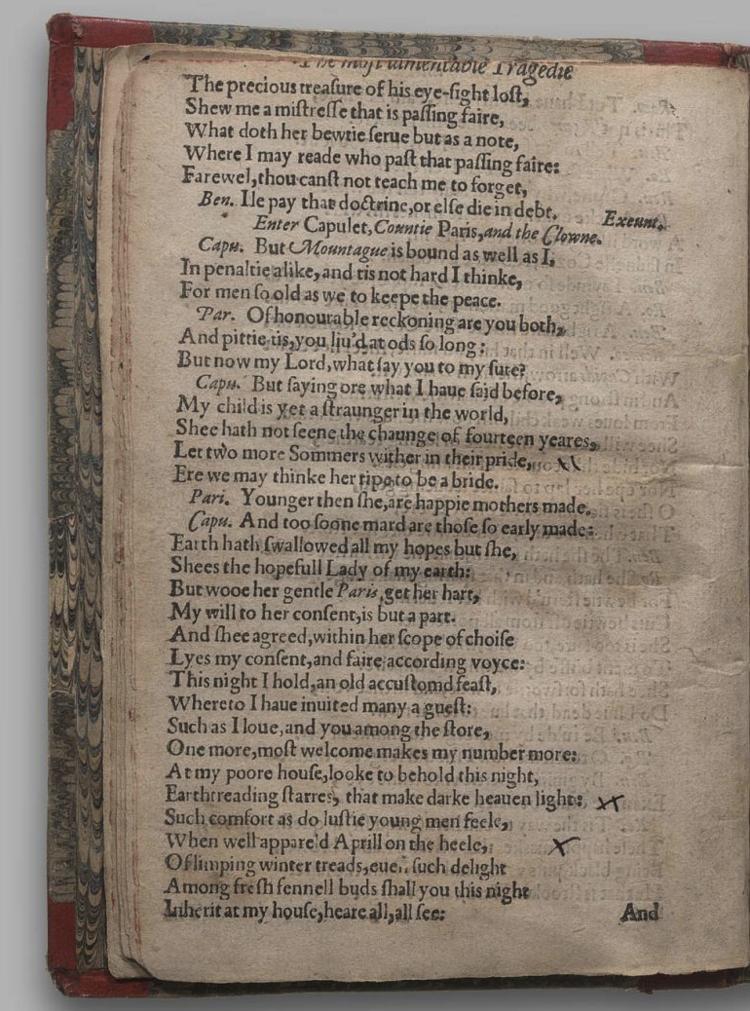 The most lamentable Tragedie
The precious treaſure of his eye-ſight loſt,
Shew me a miſtreſſe that is paſſing faire,
What doth her bewtie ſerue but as a note,
Where I may reade who paſt that paſſing faire:
Farewel, thou canſt not teach me to forget,
Ben. Ile pay that doctrine, or elſe die in debt.
Exeunt.
Enter Capulet, Countie Paris, and the Clowne.
Capu. But Mountague is bound as well as I,
In penaltie alike, and tis not hard I thinke,
For men ſo old as we to keepe the peace.
Par. Of honourable reckoning are you both,
And pittie tis, you liu'd at ods ſo long:
But now my Lord, what ſay you to my ſute?
Capu. But ſaying ore what I haue ſaid before,
My child is yet a ſtraunger in the world,
Shee hath not ſeene the chaunge of fourteen yeares,
Let two more Sommers wither in their pride,
Ere we may thinke her ripe to be a bride.
Pari. Younger then ſhe, are happie mothers made.
Capu. And too ſoone mard are thoſe ſo early made:
Earth hath ſwallowed all my hopes but ſhe,
Shees the hopefull Lady of my earth:
But wooe her gentle Paris, get her hart,
My will to her conſent, is but a part.
And ſhee agreed, within her ſcope of choiſe
Lyes my conſent, and faire according voyce:
This night I hold, an old accuſtomd feaſt,
Whereto I haue inuited many a gueſt:
Such as I loue, and you among the ſtore,
One more, moſt welcome makes my number more:
At my poore houſe, looke to behold this night,
Earthtreading ſtarres, that make darke heauen light:
Such comfort as do luſtie young men feele,
When well appare'd Aprill on the heele,
Of limping winter treads, euen ſuch delight
Among freſh fennell buds ſhall you this night
Inherit at my houſe, heare all, all ſee:
And